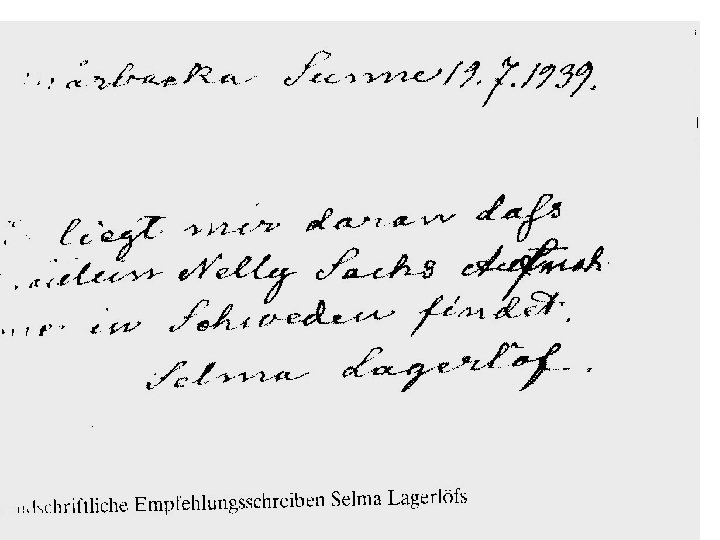 årbacka Sunne 19. 7. 1939.
liegt mir daran dafs
Nelly Sachs Aufnah
in Schweden findet.
Selma Lagerlöf.
ndschriftliche Empfehlungsschreiben Selma Lagerlöfs